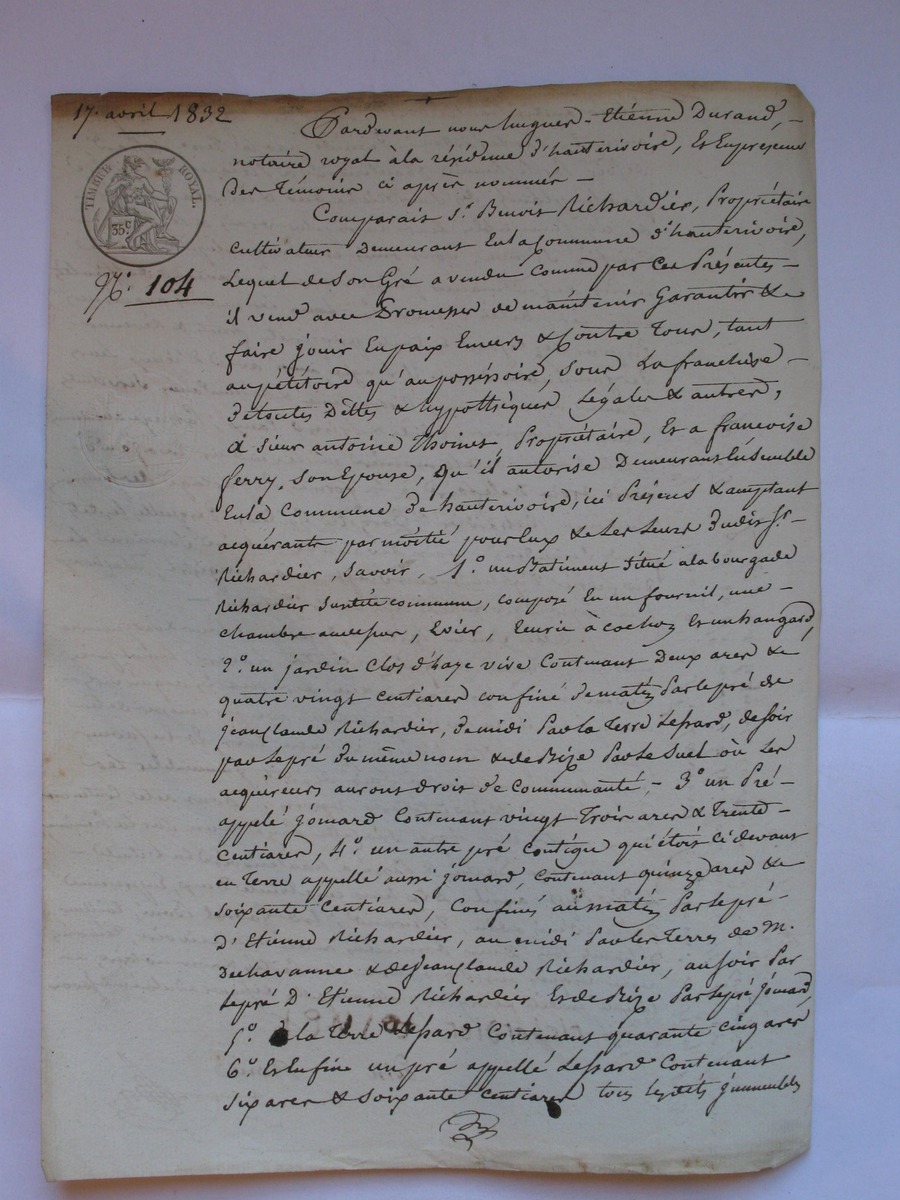 17. avril 1832
TIMBRE ROYAL.
35 c.
N.° 104
Pardevant nous hugues-Etiénne Durand,
notaire royal à la résidence d'hauterivoire, Et En présence
Des Témoins ci après nommés
Comparait S.r Benoit Richardier, Propriétaire
cultivateur Demeurant En la Commune d'hauterivoire,
Lequel de Son Gré a vendu Comme par Ces Présentes
il vend avec Promesses de maintenir Garantir &
faire jouir En paix Envers & Contre Tous, tant
au pétitoire qu'au possessoire, Sous La franchise
de toutes Dettes & hypothèques Légales & autres,
à Sieur antoine Thoinet, Propriétaire, Et a francoise
ferry, Son Epouse, qu'il autorise Demeurant Ensemble
En la Commune de hauterivoire, ici Présens & acceptant
acquérants par moitié pour Eux & Les Leurs Dudit S.r
Richardier, Savoir, 1.° un Batiment Situé a la bourgade
Richardier Susdite commune, composé En un fournil, une
chambre au dessus, Evier, Ecurie à cochon Et un hangard,
2.° un jardin Clos d'haye vive Contenant Deux ares &
quatre vingt centiares confiné de matin Par le pré de
jean Claude Richardier, de midi Par la Terre Lessard, de Soir
par le pré du même nom & de Bize Par le Suel où Les
acquéreurs auront droit de Communauté, 3.° un Pré
appelé jomard Contenant vingt Trois ares & Trente
Centiares, 4.° un autre pré Contigu qui étoit Ci devant
en Terre appellé aussi jomard, Contenant quinze ares &
soixante Centiares, Confinés au matin Par le pré
D'Etiénne Richardier, au midi Par les Terres de M.
Dechavanne & de jean Claude Richardier, au Soir Par
le pré D'Etienne Richardier Et de Bize Par le pré jomard,
5.° la Terre Lessard Contenant quarante cinq ares
6.° Et Enfin un pré appellé Lessard Contenant
Six ares & Soixante Centiares tous lesdits immeubles